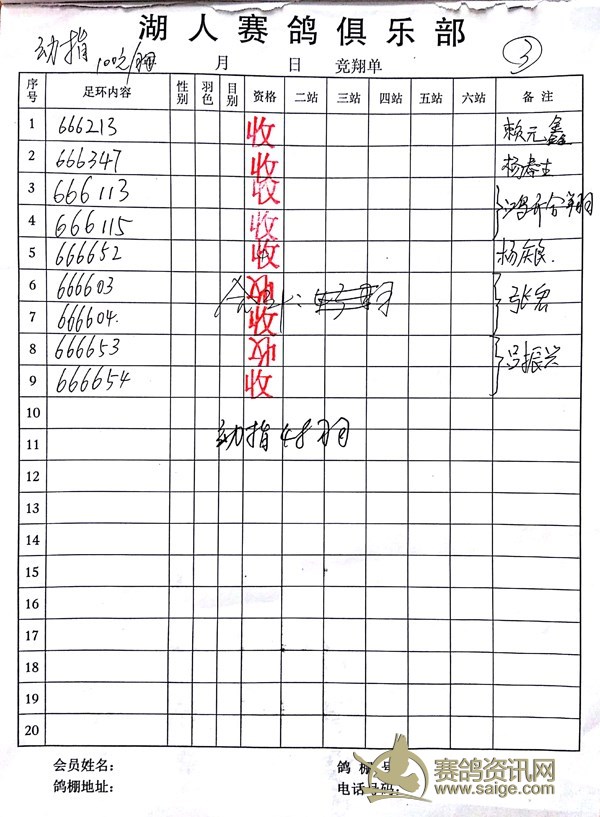 湖人赛鸽俱乐部
幼指 100元/羽 月 日 竞翔单 ③
序号 足环内容 性别 羽色 目别 资格 二站 三站 四站 五站 六站 备注
1 666213 收 赖元鑫
2 666347 收
3 666113 收
4 666115 收
5 666652 收 杨庆良.
6 666603 张宏
7 666604. 收
8 666653 冯振兴
9 666654 收
10
幼指48羽
11
12
13
14
15
16
17
18
19
20
会员姓名: 鸽棚号
鸽棚地址: 电话号码:
赛鸽资讯网
www.saige.com